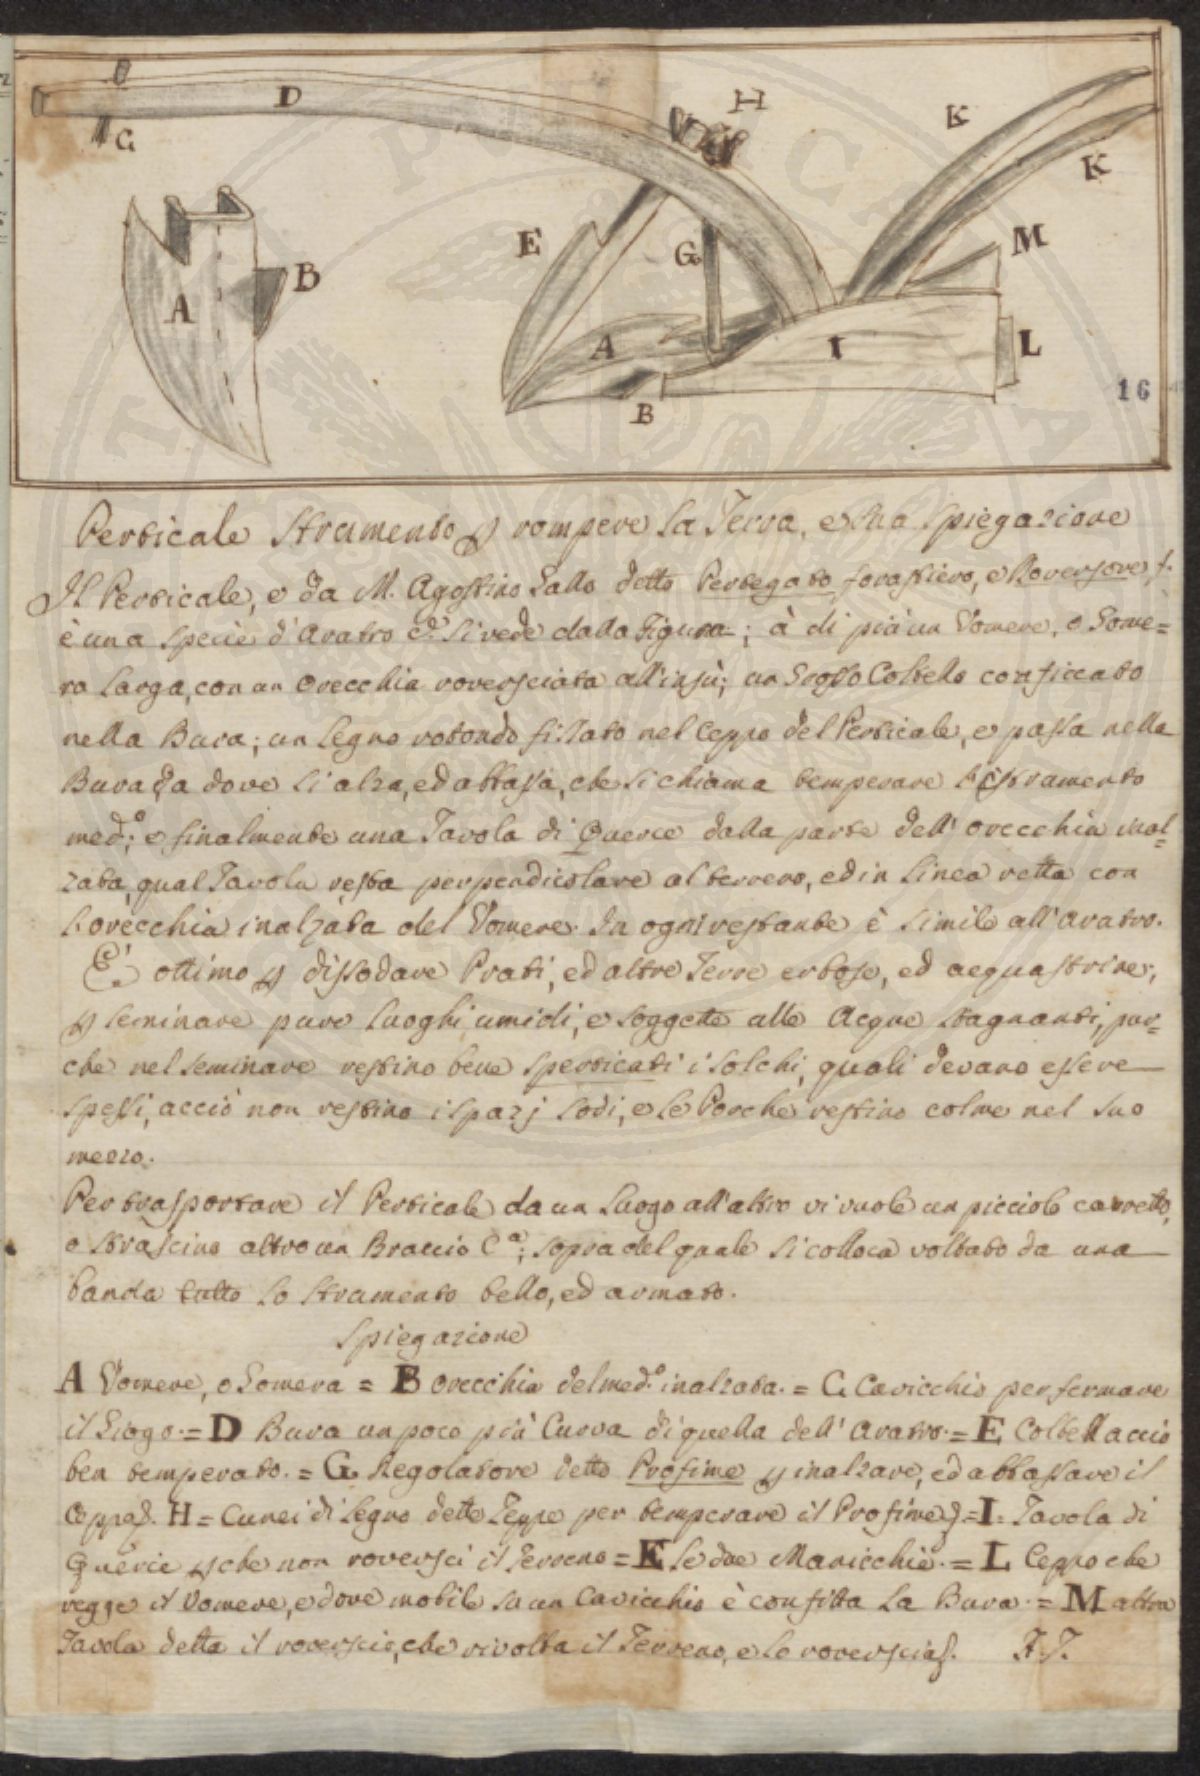 D
H
K
C
K
E
G
M
B
A
A
I
L
B
16
Perticale Strumento p rompere la Terra, e sua spiegazione
Il Perticale, e da M. Agostino Gallo detto Pertegato forastiero, e Roversore
è una specie d'Aratro che si vede dalla Figura; à di più un Vomere, o Gome=
ra larga, con un orecchia roversciata all'insù; un Coltello conficcato
nella Bura; un legno rotondo fissato nel ceppo del Perticale, e passa nella
Bura da dove si alza, ed abbassa, che si chiama temperare lo strumento
med.o; e finalmente una Tavola di Querce dalla parte dell'orecchia inal=
zata, qual Tavola resta perpendicolare al terreno, ed in linea retta con
l'orecchia inalzata del Vomere. In ogni restante è simile all'aratro.
E' ottimo p dissodare Prati, ed altre Terre erbose, ed acquastrine;
p seminare pure luoghi umidi, e soggette alle Acque stagnanti, pur=
che nel seminare restino bene sperticati i solchi, quali devano essere
spessi, acciò non restino i spazj sodi, e le Porche restino colme nel suo
mezzo.
Per trasportare il Perticale da un luogo all'altro vi vuole un picciolo carretto,
o strascino alto un Braccio C.a; sopra del quale si colloca voltato da una
banda tutto lo strumento bello, ed armato.
Spiegazione
A Vomere, o Gomera = B orecchia del med.o inalzata. = C Cavicchio per fermare
il Giogo. = D Bura un poco più Curva di quella dell'Aratro. = E Coltellaccio
ben temperato. = G Regolatore detto Profime p inalzare, ed abbassare il
Ceppo. H = Cunei di legno dette Zeppe per temperare il Profime = I = Tavola di
Quercie p che non roversci il Terreno = K le due Manicchie. = L Ceppo che
regge il Vomere, e dove mobile su un Cavicchio è confitta la Bura. = M altra
Tavola detta il roverscio, che rivolta il Terreno, e lo roverscia. F. J.